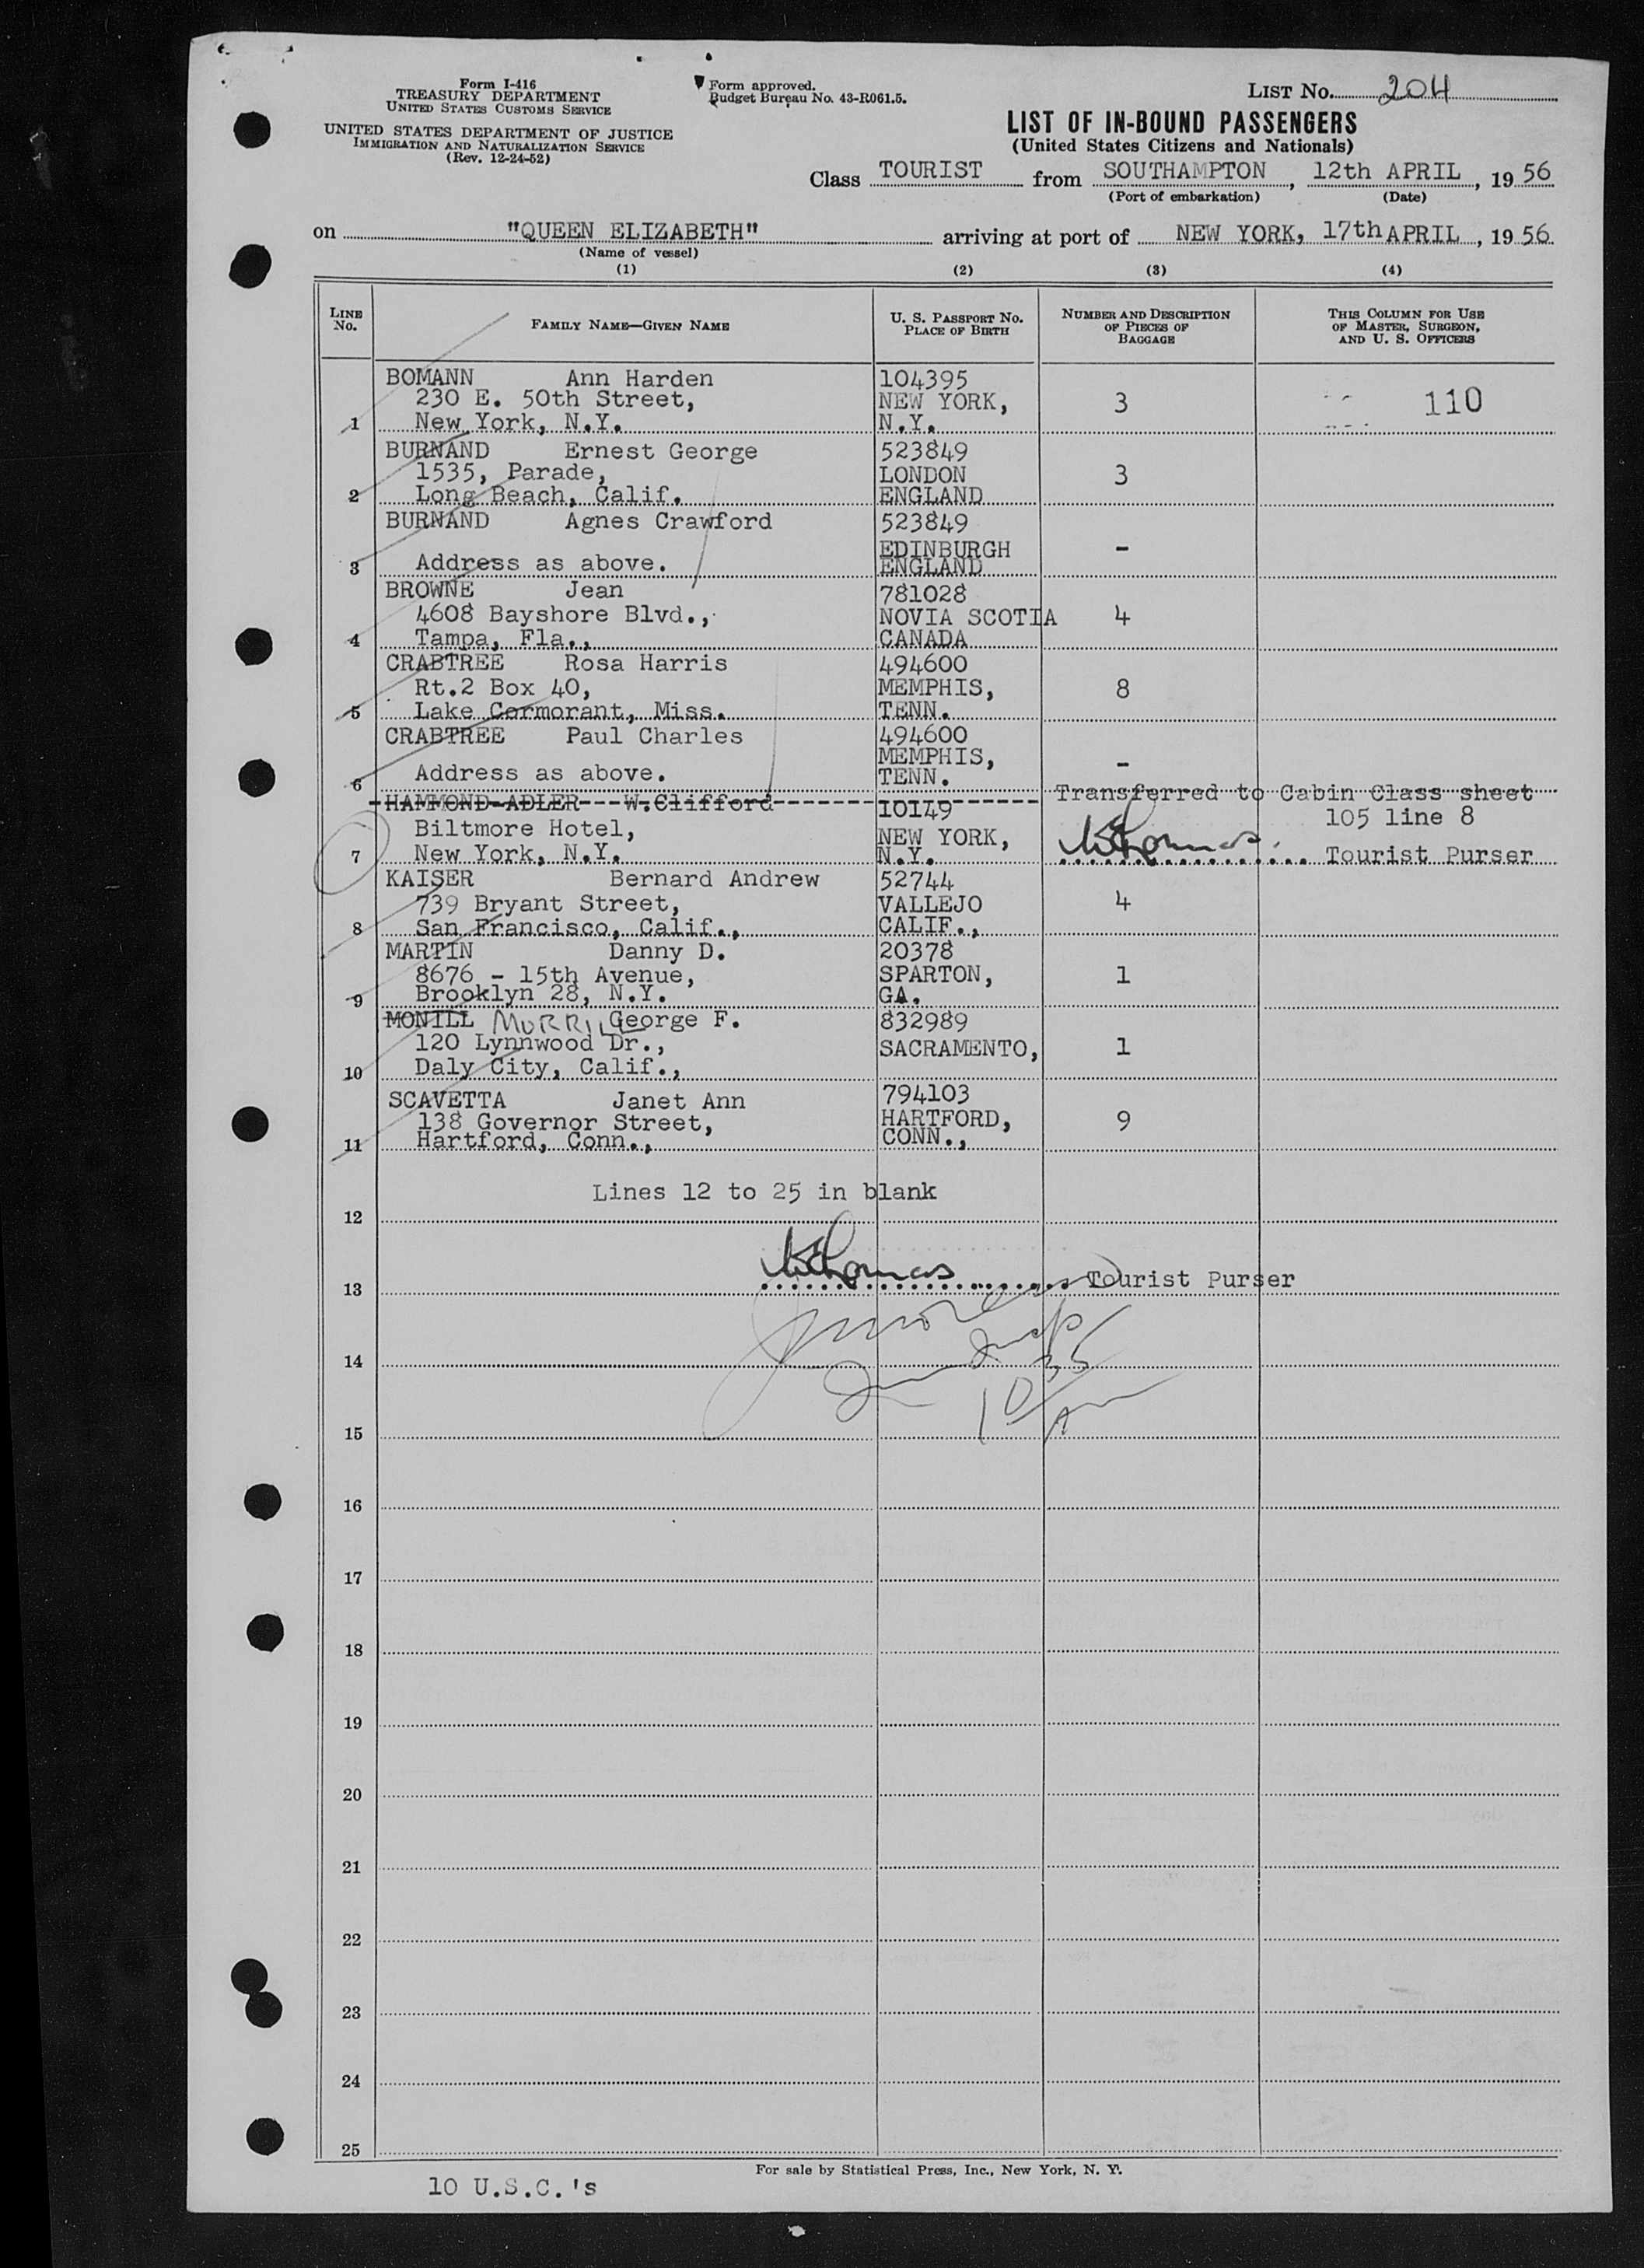 Form I-416
TREASURY DEPARTMENT
UNITED STATES CUSTOMS SERVICE
UNITED STATES DEPARTMENT OF JUSTICE
IMMIGRATION AND NATURALIZATION SERVICE
(Rev. 12-24-52)
Form approved.
Budget Bureau No. 43-R061.5.
LIST No. 204
LIST OF IN-BOUND PASSENGERS
(United States Citizens and Nationals)
Class TOURIST from SOUTHAMPTON, 12th APRIL, 1956
(Port of embarkation) (Date)
on "QUEEN ELIZABETH" arriving at port of NEW YORK, 17th APRIL, 1956
(Name of vessel)
(1) (2) (3) (4)
LINE No. FAMILY NAME—GIVEN NAME U. S. PASSPORT No. PLACE OF BIRTH NUMBER AND DESCRIPTION OF PIECES OF BAGGAGE THIS COLUMN FOR USE OF MASTER, SURGEON, AND U. S. OFFICERS
BOMANN Ann Harden 104395
230 E. 50th Street, NEW YORK, 3 110
1 New York, N.Y. N.Y.
BURNAND Ernest George 523849
1535, Parade, LONDON 3
2 Long Beach, Calif. ENGLAND
BURNAND Agnes Crawford 523849
EDINBURGH -
3 Address as above. ENGLAND
BROWNE Jean 781028
4608 Bayshore Blvd., NOVIA SCOTIA 4
4 Tampa, Fla., CANADA
CRABTREE Rosa Harris 494600
Rt.2 Box 40, MEMPHIS, 8
5 Lake Cormorant, Miss. TENN.
CRABTREE Paul Charles 494600
MEMPHIS, -
6 Address as above. TENN.
HAMMOND-ADLER W.Clifford 10149 Transferred to Cabin Class sheet
Biltmore Hotel, NEW YORK, 105 line 8
7 New York, N.Y. N.Y. WThomas. Tourist Purser
KAISER Bernard Andrew 52744
739 Bryant Street, VALLEJO 4
8 San Francisco, Calif., CALIF.,
MARTIN Danny D. 20378
8676 - 15th Avenue, SPARTON, 1
9 Brooklyn 28, N.Y. GA.
MONILL MORRILL George F. 832989
120 Lynnwood Dr., SACRAMENTO, 1
10 Daly City, Calif.,
SCAVETTA Janet Ann 794103
138 Governor Street, HARTFORD, 9
11 Hartford, Conn., CONN.,
Lines 12 to 25 in blank
12
WThomas Tourist Purser
13
14
10 35
15
16
17
18
19
20
21
22
23
24
25
For sale by Statistical Press, Inc., New York, N. Y.
10 U.S.C.'s